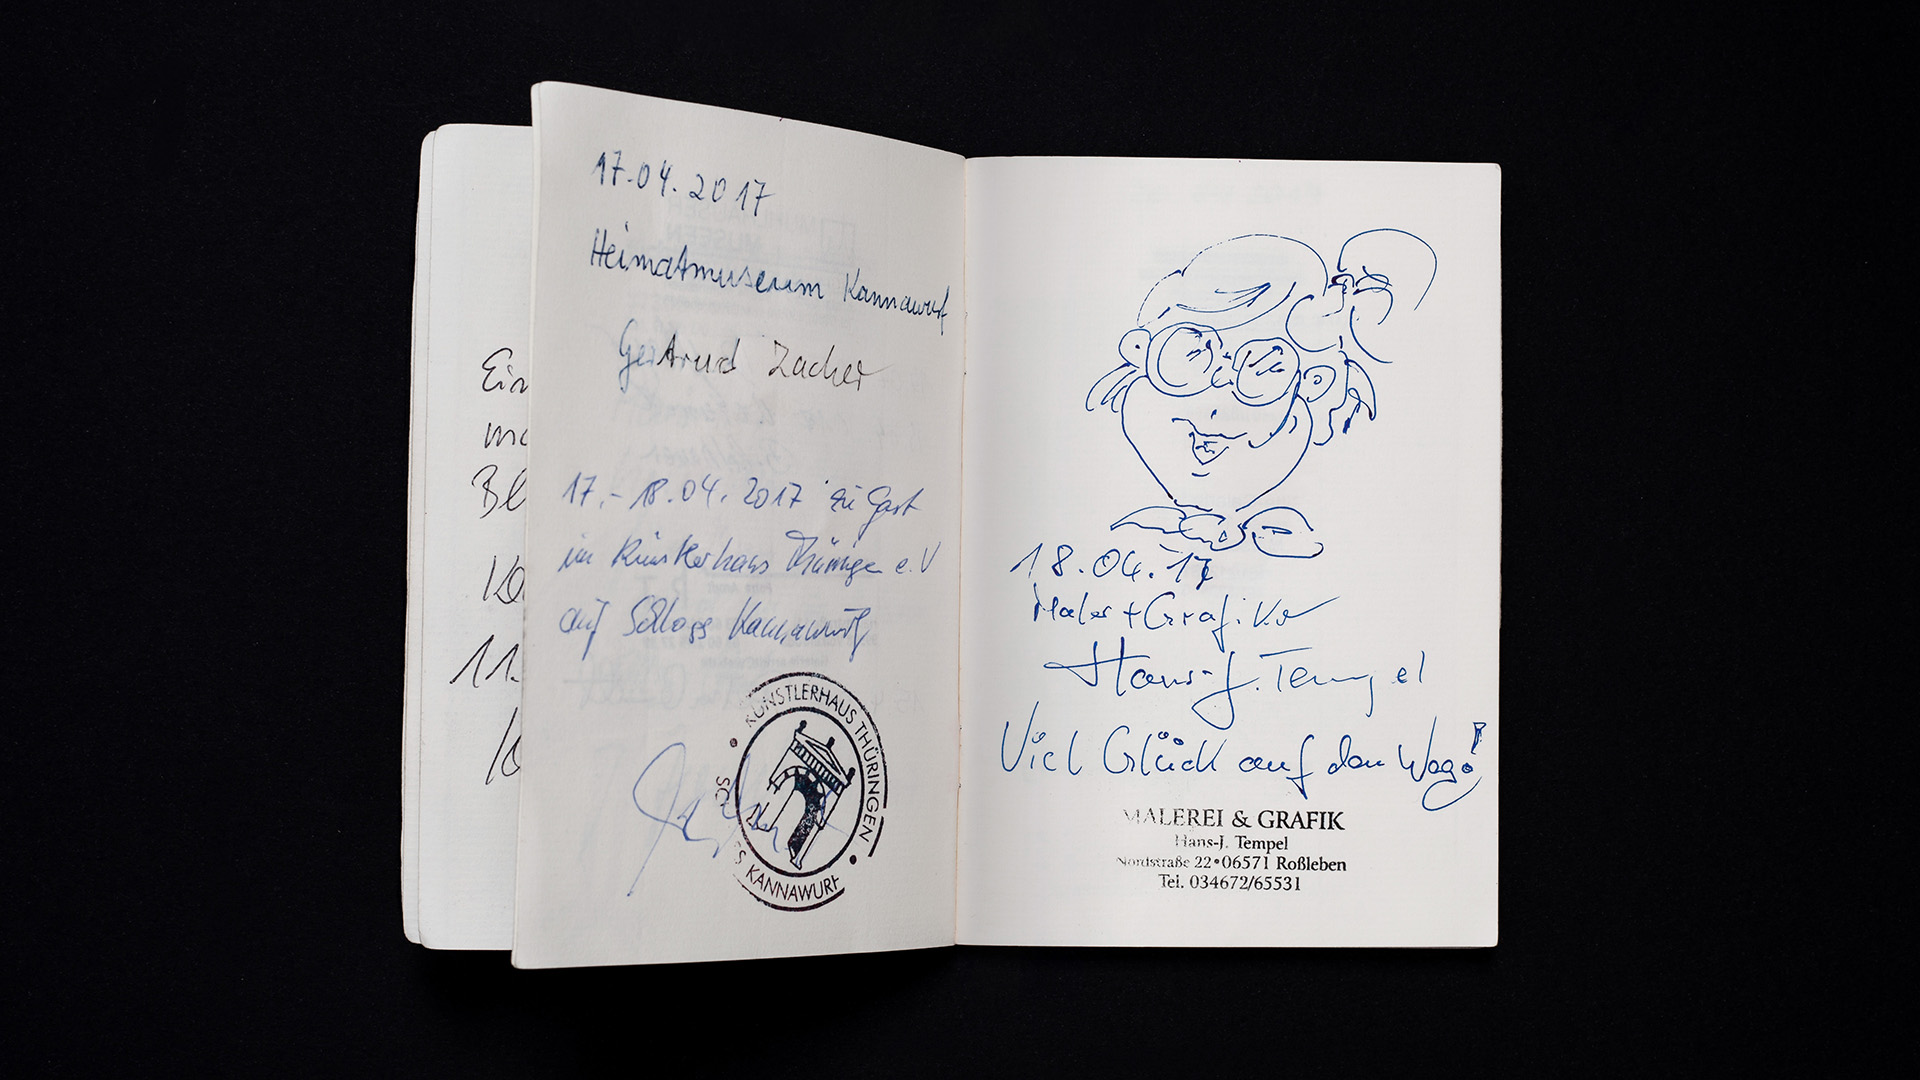 Ein
Bl
11.
17.04.2017
Heimatmuseum Kannawurf
Gertrud Zacher
17.-18.04.2017 zu Gast
im Künstlerhaus Thüringen e.V
auf Schloss Kannawurf
KÜNSTLERHAUS THÜRINGEN
KANNAWURF
18.04.17
Maler + Grafiker
Hans-J. Tempel
Viel Glück auf dem Weg!
MALEREI & GRAFIK
Hans-J. Tempel
Nordstraße 22•06571 Roßleben
Tel. 034672/65531